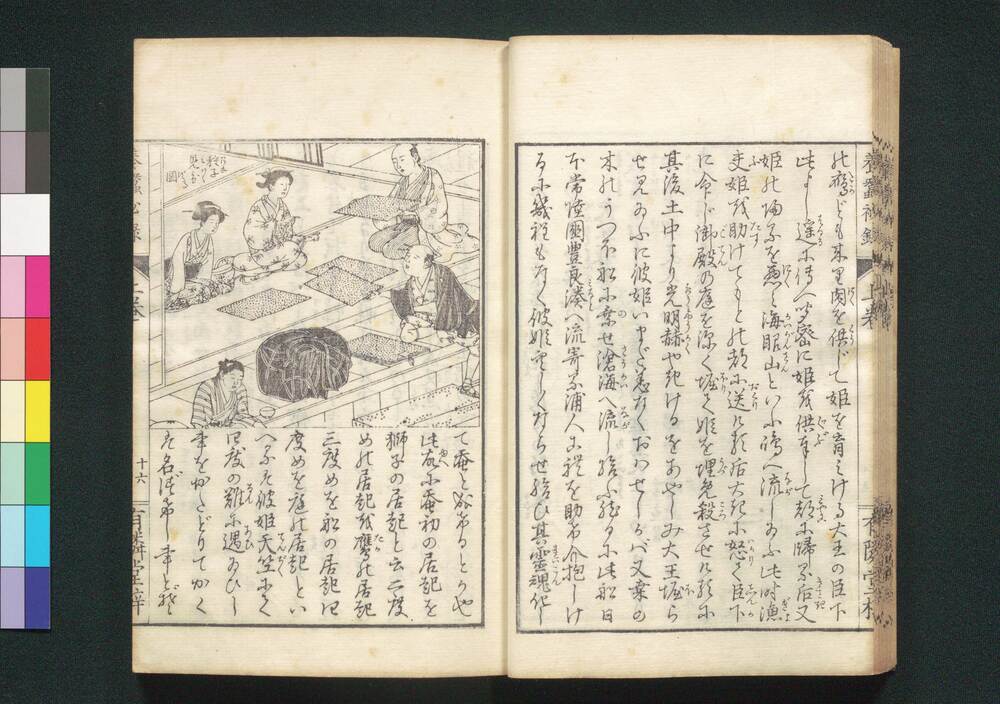 養蚕秘録 上巻
有隣堂梓
の鷹ども来り肉を供じて姫を育みける大王の臣下
此よし遥に傳へ聞密に姫を供奉して都に歸る后又
姫の帰るを悪み海眼山といふ嶋へ流し給ふ此時漁
夫姫を助けてもとの都に送りけれ后大きに怒て臣下
に令じ御殿の庭を深く堀て姫を埋め殺させけるに
其後土中より光明赫やきけるをあやしみ大王堀ら
せ見給ふに彼姫いまだ恙なくおわせしかバ又桑の
木のうつほ船に乗せ滄海へ流し給ふ然るに此船日
本常陸國豊良湊へ流寄る浦人これを助け介抱しけ
るに幾程もなく彼姫空しくならせ給ひ其霊魂化し
図
て蚕と成けるとかや
此故に蚕初の居起を
獅子の居起と云二度
めの居起を鷹の居起
三度めを船の居起四
度めを庭の居起とい
へるは彼姫天竺にて
四度の難に遇給ひし
事をかたどりてかく
は名づけし事とぞ
養蚕秘録 上巻
十六
有隣堂梓